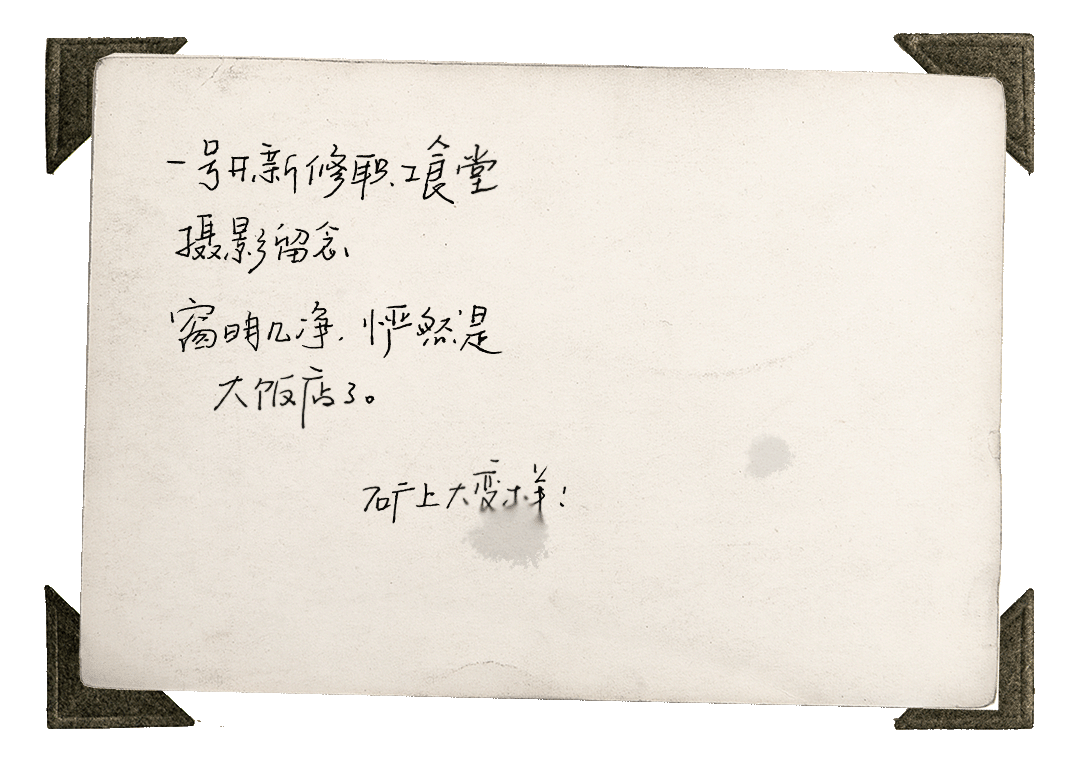 一号井新修职工食堂
摄影留念
窗明几净，俨然是
大饭店了。
矿上大变样！